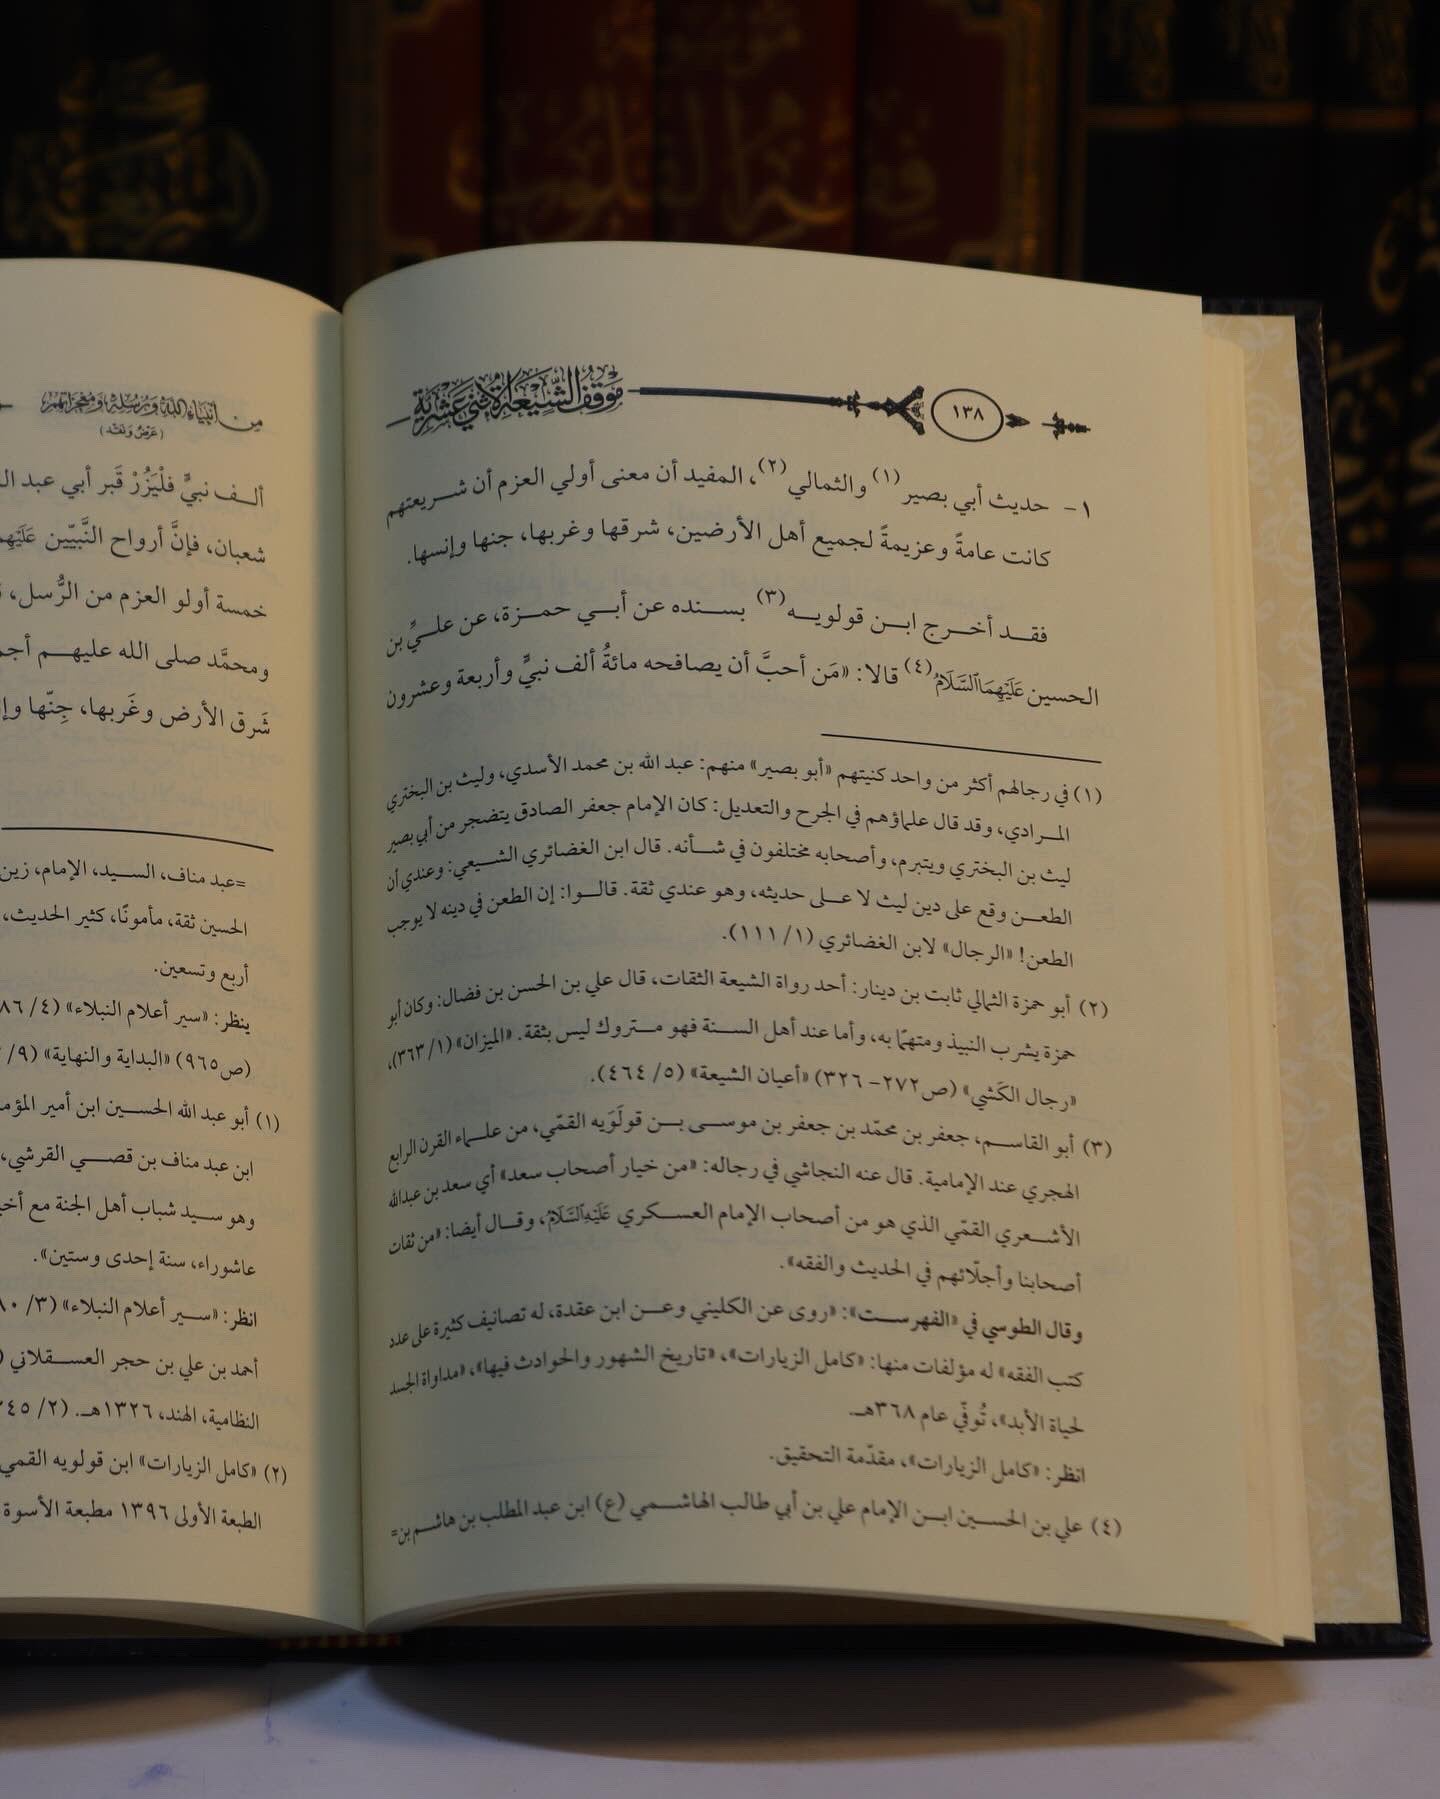 فقه القلوب
موقف الشيعة الاثني عشرية
١٣٨
١- حديث أبي بصير(١) والثمالي(٢)، المفيد أن معنى أولي العزم أن شريعتهم
كانت عامةً وعزيمةً لجميع أهل الأرضين، شرقها وغربها، جنها وإنسها.
فقد أخرج ابن قولويه(٣) بسنده عن أبي حمزة، عن عليِّ بن
الحسين عَلَيْهِمَا ٱلسَّلَامُ(٤) قالا: «مَن أحبَّ أن يصافحه مائةُ ألف نبيٍّ وأربعة وعشرون
(١) في رجالهم أكثر من واحد كنيتهم «أبو بصير» منهم: عبد الله بن محمد الأسدي، وليث بن البختري
المرادي، وقد قال علماؤهم في الجرح والتعديل: كان الإمام جعفر الصادق يتضجر من أبي بصير
ليث بن البختري ويتبرم، وأصحابه مختلفون في شأنه. قال ابن الغضائري الشيعي: وعندي أن
الطعن وقع على دين ليث لا على حديثه، وهو عندي ثقة. قالوا: إن الطعن في دينه لا يوجب
الطعن! «الرجال» لابن الغضائري (١/ ١١١).
(٢) أبو حمزة الثمالي ثابت بن دينار: أحد رواة الشيعة الثقات، قال علي بن الحسن بن فضال: وكان أبو
حمزة يشرب النبيذ ومتهمًا به، وأما عند أهل السنة فهو متروك ليس بثقة. «الميزان» (١/ ٣٦٣)،
«رجال الكَشي» (ص٢٧٢- ٣٢٦) «أعيان الشيعة» (٥/ ٤٦٤).
(٣) أبو القاسم، جعفر بن محمّد بن جعفر بن موسى بن قولَوَيه القمّي، من علماء القرن الرابع
الهجري عند الإمامية. قال عنه النجاشي في رجاله: «من خيار أصحاب سعد» أي سعد بن عبدالله
الأشعري القمّي الذي هو من أصحاب الإمام العسكري عَلَيْهِ ٱلسَّلَامُ، وقال أيضا: «من ثقات
أصحابنا وأجلّائهم في الحديث والفقه».
وقال الطوسي في «الفهرست»: «روى عن الكليني وعن ابن عقدة، له تصانيف كثيرة على عدد
كتب الفقه» له مؤلفات منها: «كامل الزيارات»، «تاريخ الشهور والحوادث فيها»، «مداواة الجسد
لحياة الأبد»، تُوفّي عام ٣٦٨هـ.
انظر: «كامل الزيارات»، مقدّمة التحقيق.
(٤) علي بن الحسين ابن الإمام علي بن أبي طالب الهاشمي (ع) ابن عبد المطلب بن هاشم بن=
من أنبياء الله ورسله ومعجزاتهم
(عرض ونقد)
ألف نبيٍّ فلْيَزُرْ قَبر أبي عبد
شعبان، فإنَّ أرواح النَّبيّين
خمسة أولو العزم من الرُّسل،
ومحمَّد صلى الله عليهم
شَرق الأرض وغَربها، جِنّها
=عبد مناف، السيد، الإمام، زين
الحسين ثقة، مأمونًا، كثير الحديث،
أربع وتسعين.
ينظر: «سير أعلام النبلاء» (٤/
(ص٩٦٥) «البداية والنهاية» (٩/
(١) أبو عبد الله الحسين ابن أمير
ابن عبد مناف بن قصي القرشي،
وهو سيد شباب أهل الجنة مع
عاشوراء، سنة إحدى وستين».
انظر: «سير أعلام النبلاء» (٣/
أحمد بن علي بن حجر العسقلاني
النظامية، الهند، ١٣٢٦هـ. (٢/
(٢) «كامل الزيارات» ابن قولويه القمي
الطبعة الأولى ١٣٩٦ مطبعة الأسوة